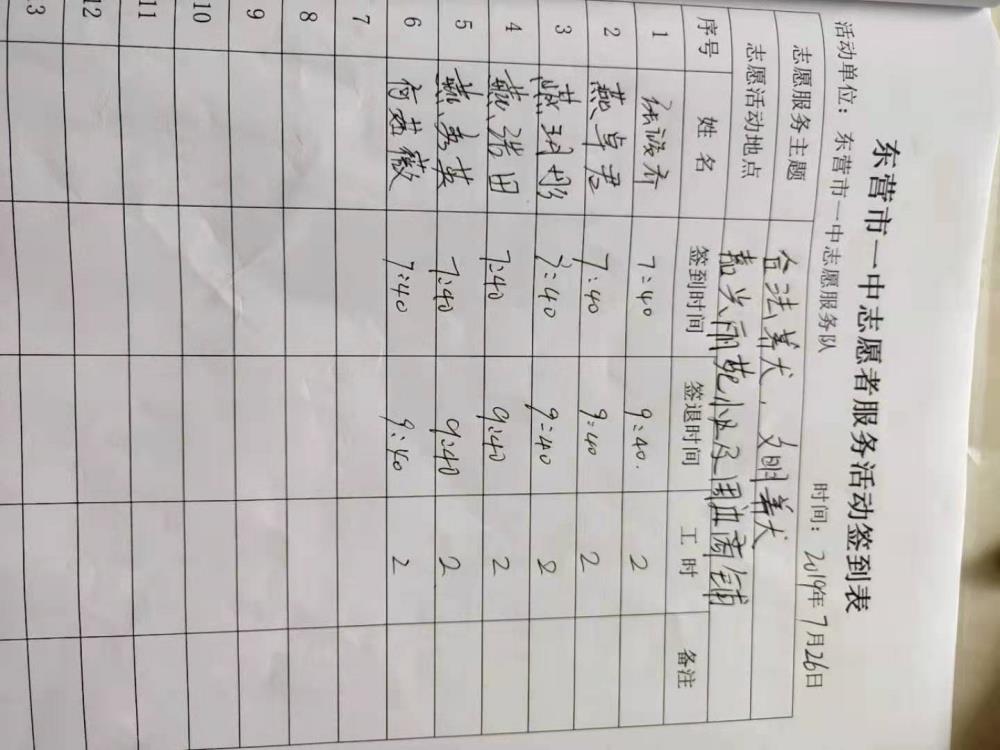 东营市一中志愿者服务活动签到表
活动单位：东营市一中志愿服务队 时间：2019年7月26日
志愿服务主题 合法养犬，文明养犬
志愿活动地点 嘉兴丽苑小区及周边商铺
序号 姓名 签到时间 签退时间 工时 备注
1 7:40 9:40. 2
2 燕卓君 7:40 9:40 2
3 7:40 9:40 2
4 7:40 9:40 2
5 秀英 7:40 9:40 2
6 薇 7:40 9:40 2
7
8
9
10
11
12
13